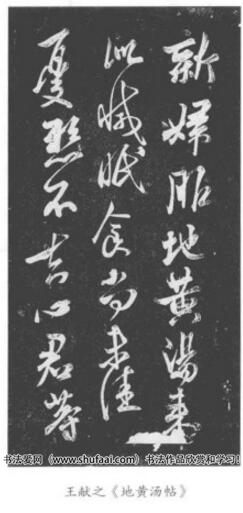 新婦服地黄湯来
似減眠食尚未佳
憂懸不去心君等
书法爱网（www.shufaai.com）书法作品欣赏和学习!
王献之《地黄汤帖》